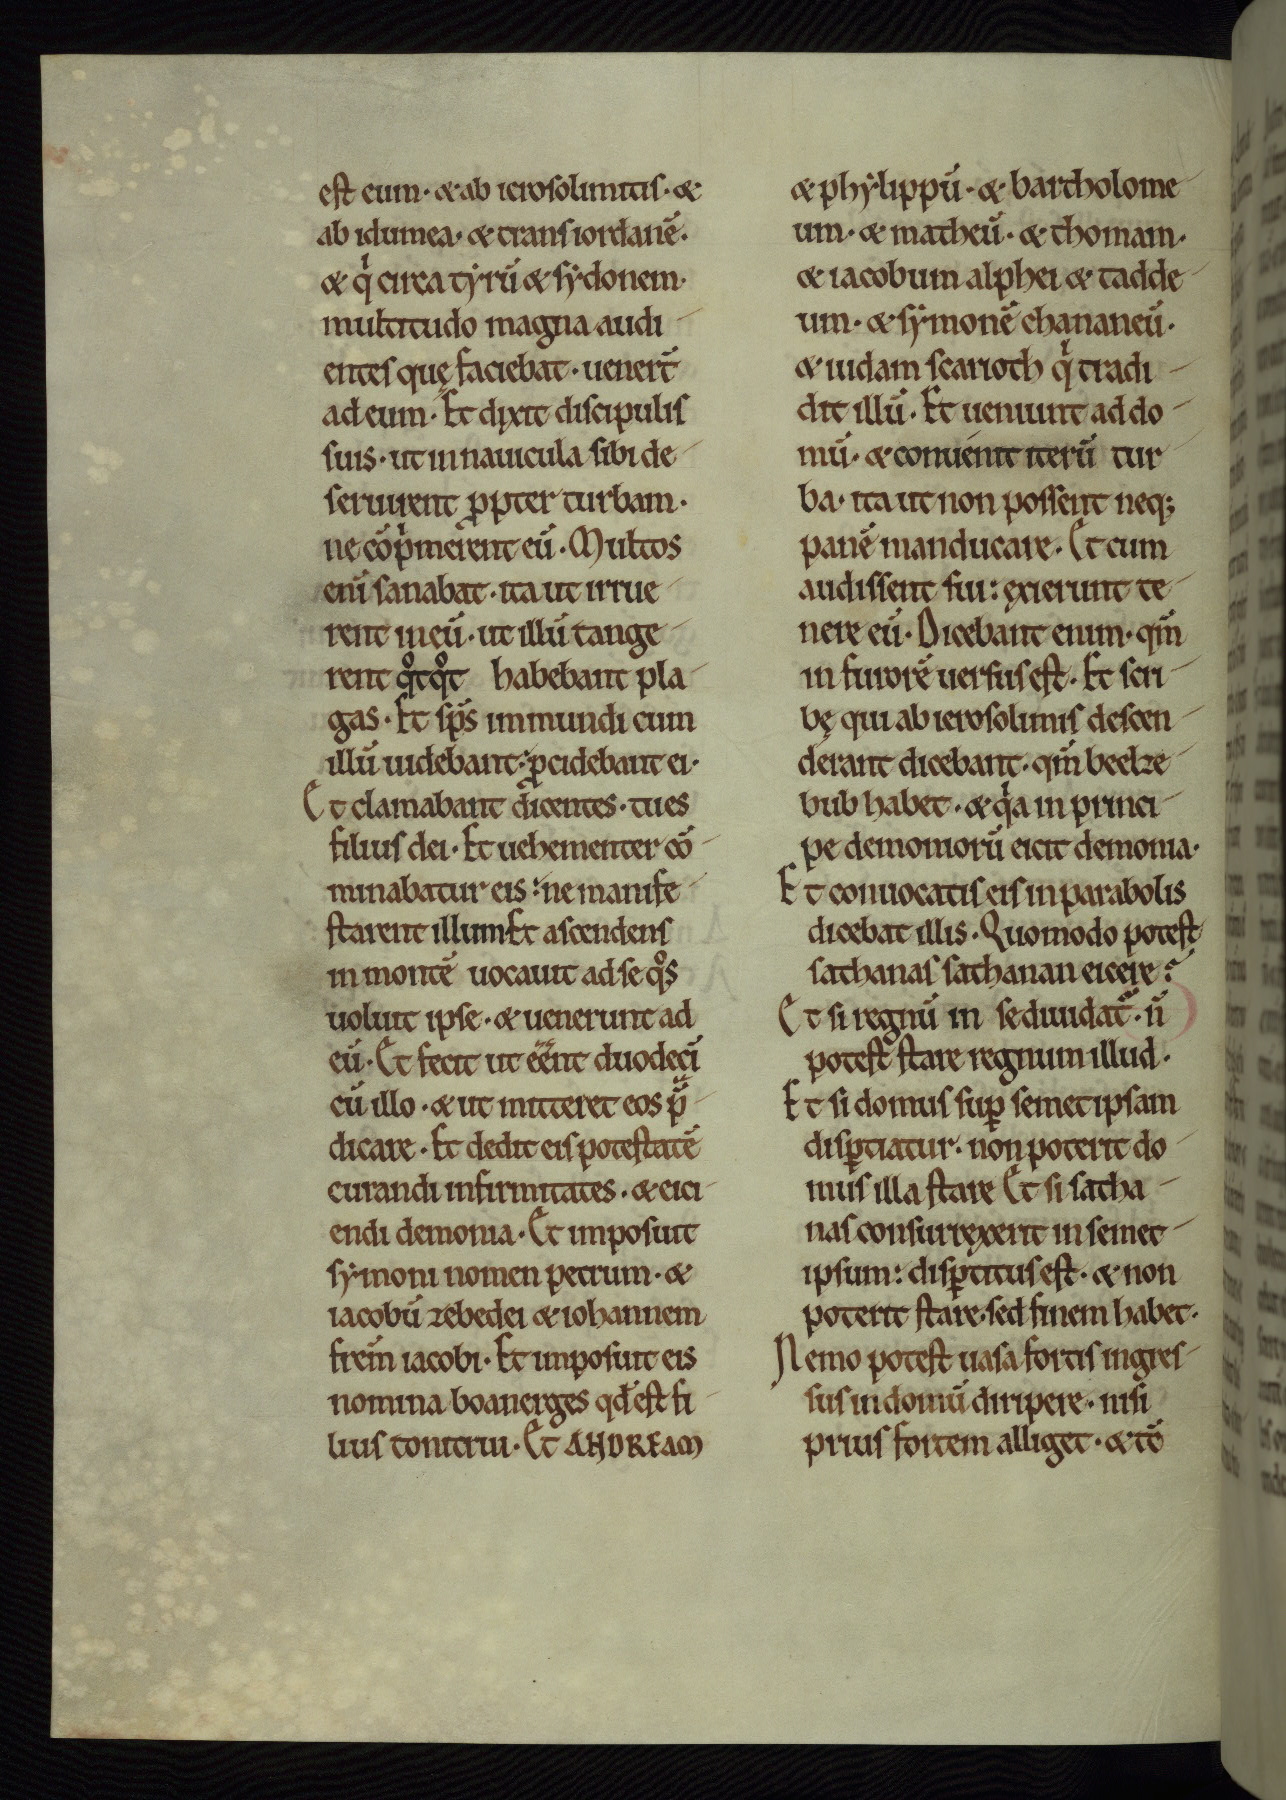 est eum· & ab ierosolimitis· &
ab idumea· & trans iordanē·
& qͥ circa tẏrū & sẏdonem·
multitudo magna audi
entes quę faciebat· uenert̄
ad eum· Et dixit discipulis
suis· ut in nauicula sibi de
seruirent ꝓpter turbam·
ne cōpͥmerent eū· Multos
enī sanabat· ita ut irrue
rent in eū· ut illū tange
rent qͦtqͦt habebant pla
gas· Et sp̄s immundi cum
illū uidebant: ꝓcidebant ei·
Et clamabant dicentes· tu es
filius dei· Et uehementer cō
minabatur eis: ne manife
starent illum Et ascendens
in montē uocauit ad se qͦs
uoluit ipse· & uenerunt ad
eū· Et fecit ut eēnt duodecī
cū illo· & ut mitteret eos p̄
dicare· Et dedit eis potestatē
curandi infirmitates· & eici
endi demonia· Et imposuit
sẏmoni nomen petrum· &
iacobū zebedei & iohannem
frem̄ iacobi· Et imposuit eis
nomina boanerges qđ est fi
lius tonitrui· Et ANDREAM
& phẏlippū· & bartholome
um· & matheū· & thomam·
& iacobum alphei & tadde
um· & sẏmonē chananeū·
& iudam scarioth qͥ tradi
dit illū· Et ueniunt ad do
mū· & conuenit iterū tur
ba· ita ut non possent neq;
panē manducare· Et cum
audissent sui: exierunt te
nere eū· Dicebant enim· qm̄
in furorē uersus est· Et scri
bę qui ab ierosolimis descen
derant dicebant· qm̄ beelze
bub habet· & qͥa in princi
pe demoniorū eicit demonia·
Et conuocatis eis in parabolis
dicebat illis· Quomodo potest
sathanas sathanan eicere?
Et si regnū in se diuidat᷑· n̄
potest stare regnum illud·
Et si domus suꝑ semetipsam
disꝑtiatur· non poterit do
mus illa stare Et si satha
nas consurrexerit in semet
ipsum: disꝑtitus est· & non
poterit stare· sed finem habet·
Nemo potest uasa fortis ingres
sus in domū diripere· nisi
prius fortem alliget· & tc̄